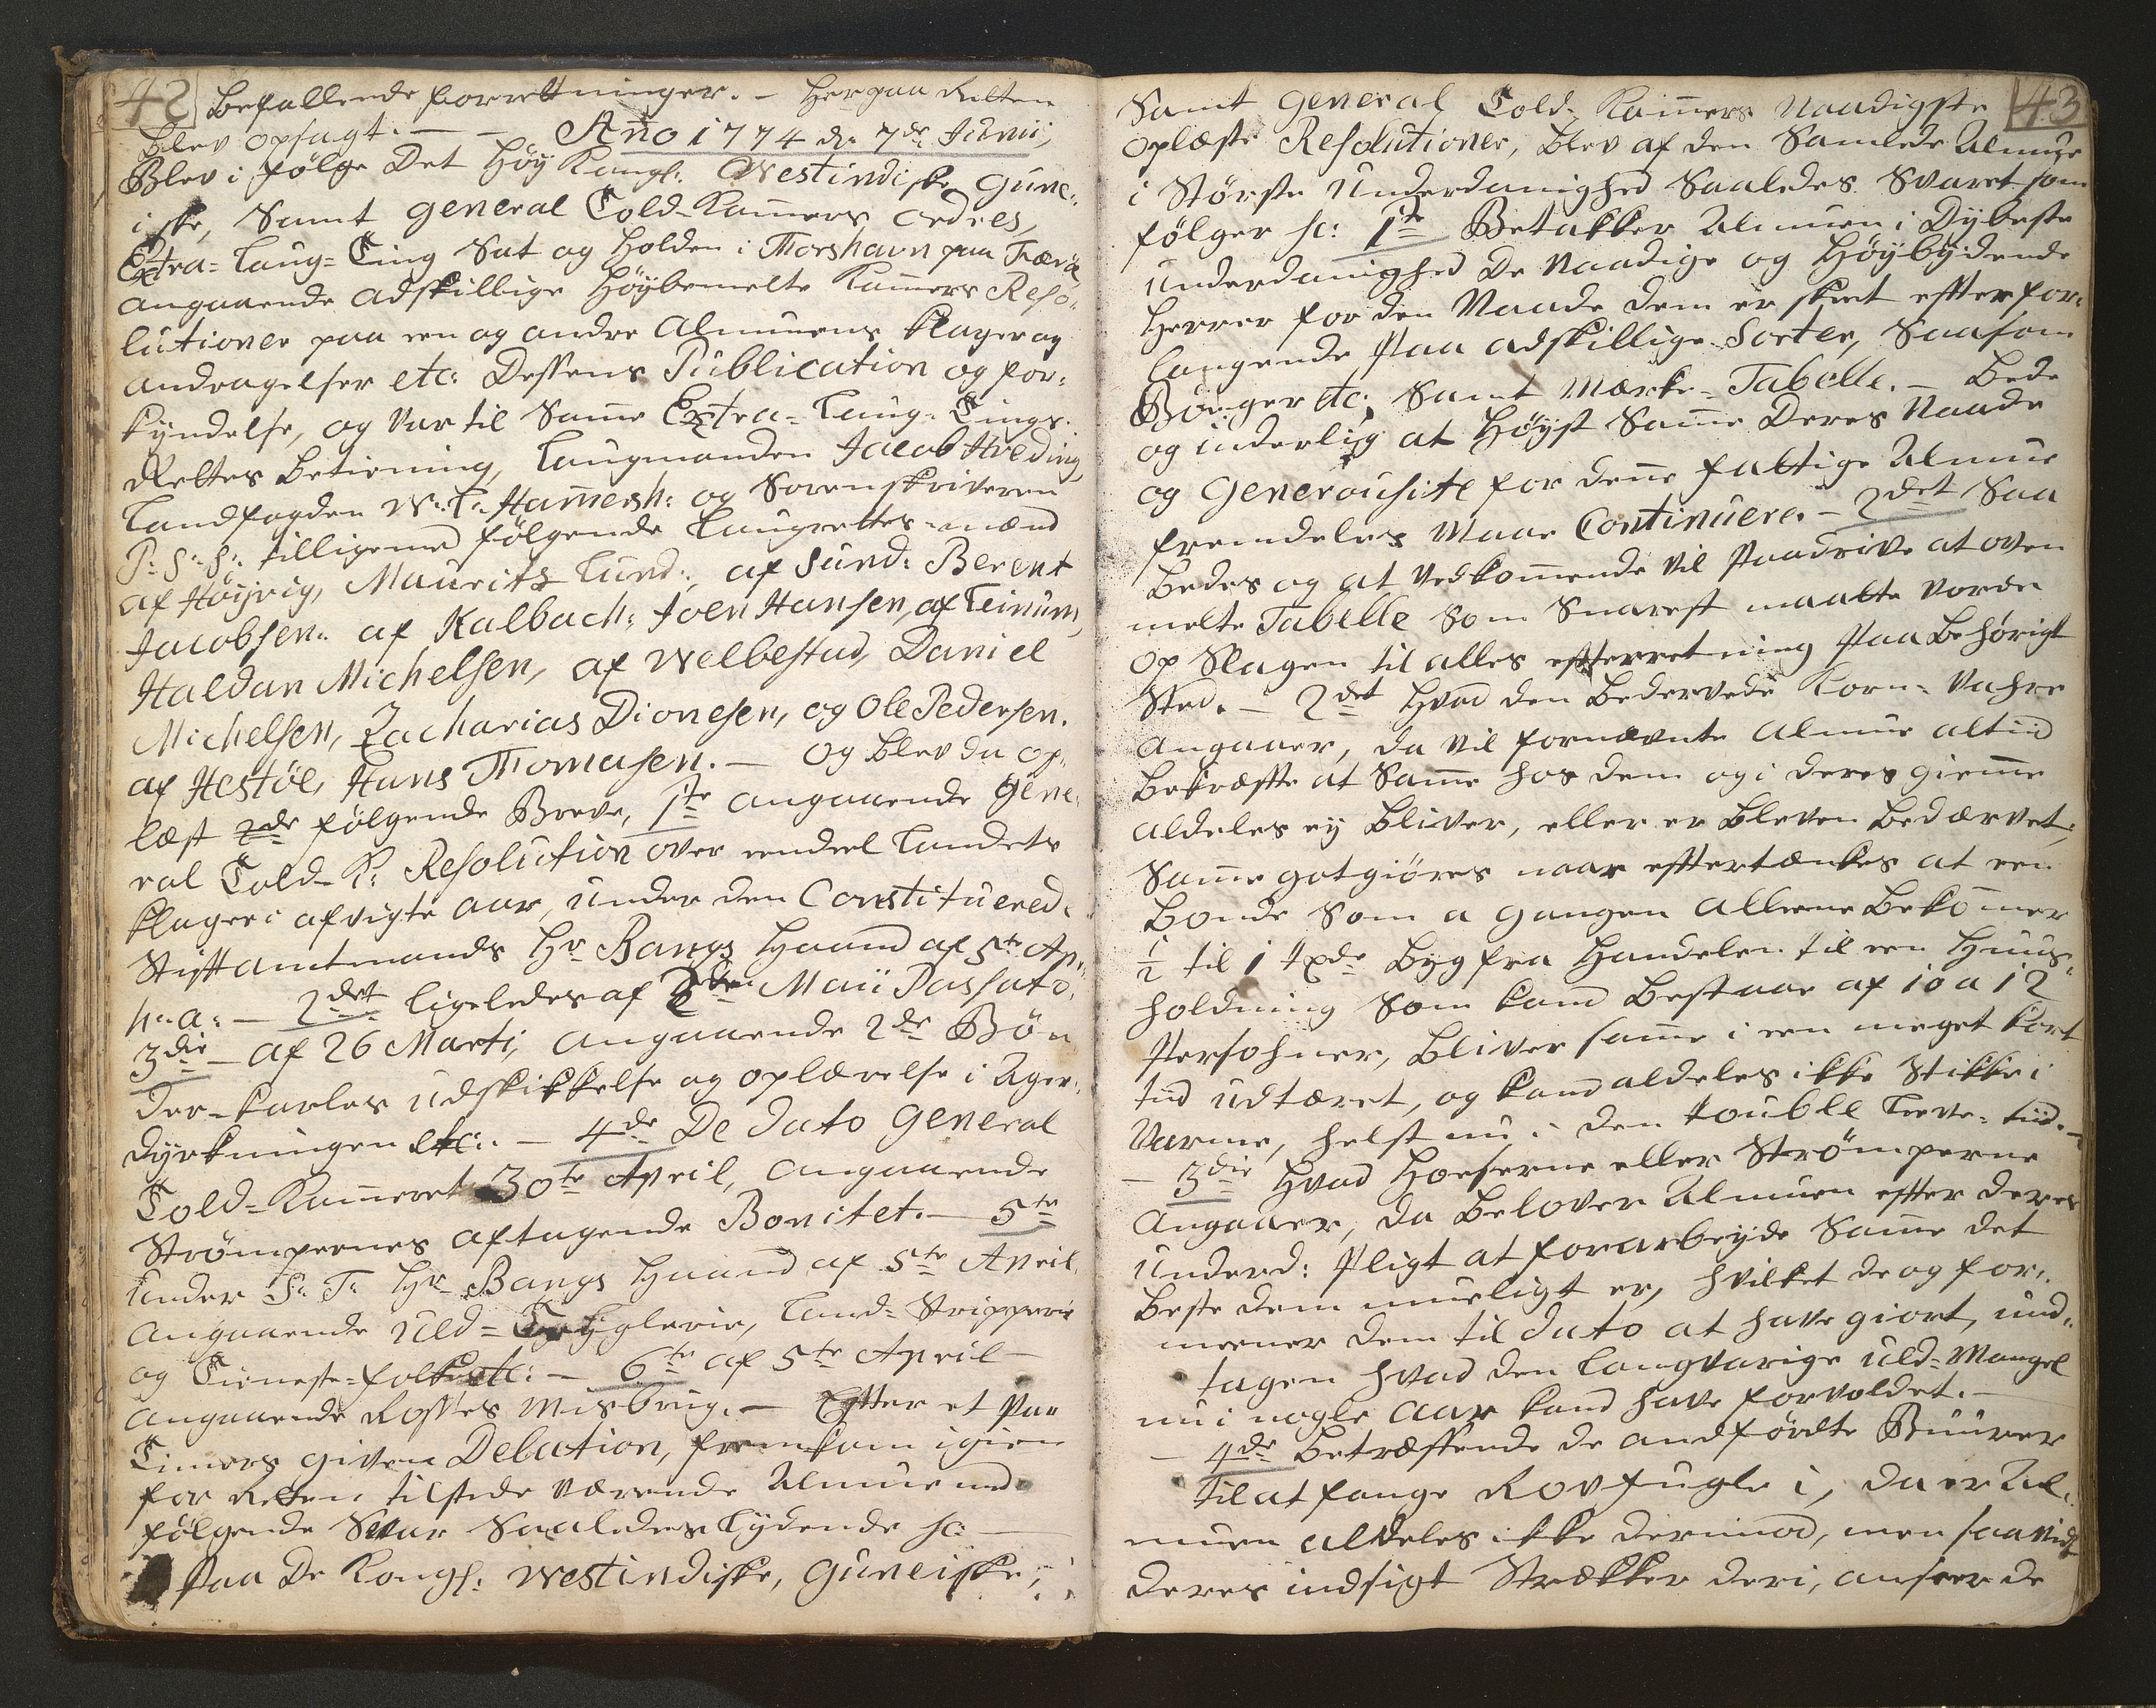 42 Befallende forretninger. – Herpaa Retten
blev opsagt. – – Año 1774 dn 7de Junii,
Blev i følge Det Høy Kongl: Westindiske Gune-
iske, Samt General Told-Kam̄ers ordres,
Extra-Laug-Ting Sat og holden i Thorshavn paa Færøe
angaaende adskillige Høybemelte Kam̄ers Reso-
lutioner paa een og andre Almuens klager og
andragelser etc: Dessens Publication og for-
kyndelse, og var til Sam̄e Extra-Laug-Tings-
Rettes betiening, Laugmanden Jacob Hveding,
Landfogden W: L: Ham̄ersh: og Sorenskriveren
P: S: H: tilligemed følgende Laugrettes-mænd
af Høijvig, Maurits Lund:, af Sund: Berent
Jacobsen. af Kalbach: Joen Hansen, af Leinum,
Haldan Michelsen, af Welbestad, Daniel
Michelsen, Zacharias Dionesen, og Ole Pedersen.
af Hestøe, Hans Thomasen. – og blev da op-
læst 2de følgende Breve, 1te angaaende Gene-
ral Told-K: Resolution over eendeel Landets
klager i afvigte aar, under den Constituered-
Stiftamtmands Hr Bangs Haand af 5te Ap:
h: a: – 2det ligeledes af Maii Passato.
3die – af 26 Marti, angaaende 2de Bøn
der-karles udskikkelse og oplærelse i Ager-
dyrkningen etc: – 4de De Dato General
Told-Kam̄eret 30te April, angaaende
Strømpernes aftagende Bonitet. – 5te
Under S: T: Hr Bangs Haand af 5te April,
angaaende Uld-, Land-Stripperie
og Tieneste-folk etc: – 6te af 5te April –
angaaende Rosses Misbrug. – Efter et Par
Timers given Delation, fremkom igien
for Retten tilstede værende Almue med
følgende Svar Saaledes Lydende sc: –
Paa De Kongl: Westindiske, Guneiske,
43
Samt General Told-Kam̄ers Naadigste
oplæste Resolutioner, blev af den Samlede Almue
i Største Underdanighed Saaledes Svaret som
følger sc: 1te Betakker Almuen i Dybeste
Underdanighed De Naadige og Høybydende
Herrer for den Naade dem er skeet efter for-
langende Paa adskillige Sorter, Saasom
Bøuger etc, Samt Mærke-Tabelle. – Bede
og inderlig at Høyst Sam̄e Deres Naade
og Generousite for den̄e fattige Almue
fremdeles Maae Continuere. – 2det Saa
bedes og at vedkom̄ende vil Paadrive at oven
melte Tabelle Som Snarest maatte vorde
op Slagen til alles efterretning Paa behørigt
Sted. – 2det Hvad den bedervede Korn-Vahre
angaaer, da vil fornævnte Almue altiid
bekræfte at Sam̄e hos dem og i deres giem̄e
aldeles ey bliver, eller er bleven bedærvet,
Sam̄e gotgiøres naar eftertænkes at een
bonde Som a gangen allene bekom̄er
½ til 1 tdxe byg fra Handelen til een Huus-
holdning Som kand bestaae af 10 a 12
Persohner, bliver sam̄e i een meget kort
tiid udtæret, og kand aldeles ikke Stikke i
Varme, helst nu i den touble Leve-tiid. –
– 3die Hvad Hoeserne eller Strømperne
angaaer, da belover Almuen efter deres
underd: Pligt at forarbeyde Sam̄e det
beste dem mueligt er, hvilket de og for-
meener dem til Dato at have giort, und-
tagen hvad den langvarige Uld-Mangel
nu i nogle Aar kand have forvoldet. –
– 4de betræffende de andførte Buurer
til at fange Rovfugle i, da er Al-
muen aldeles ikke derimod, men saavidt
deres indsigt Strækker deri, ansees de